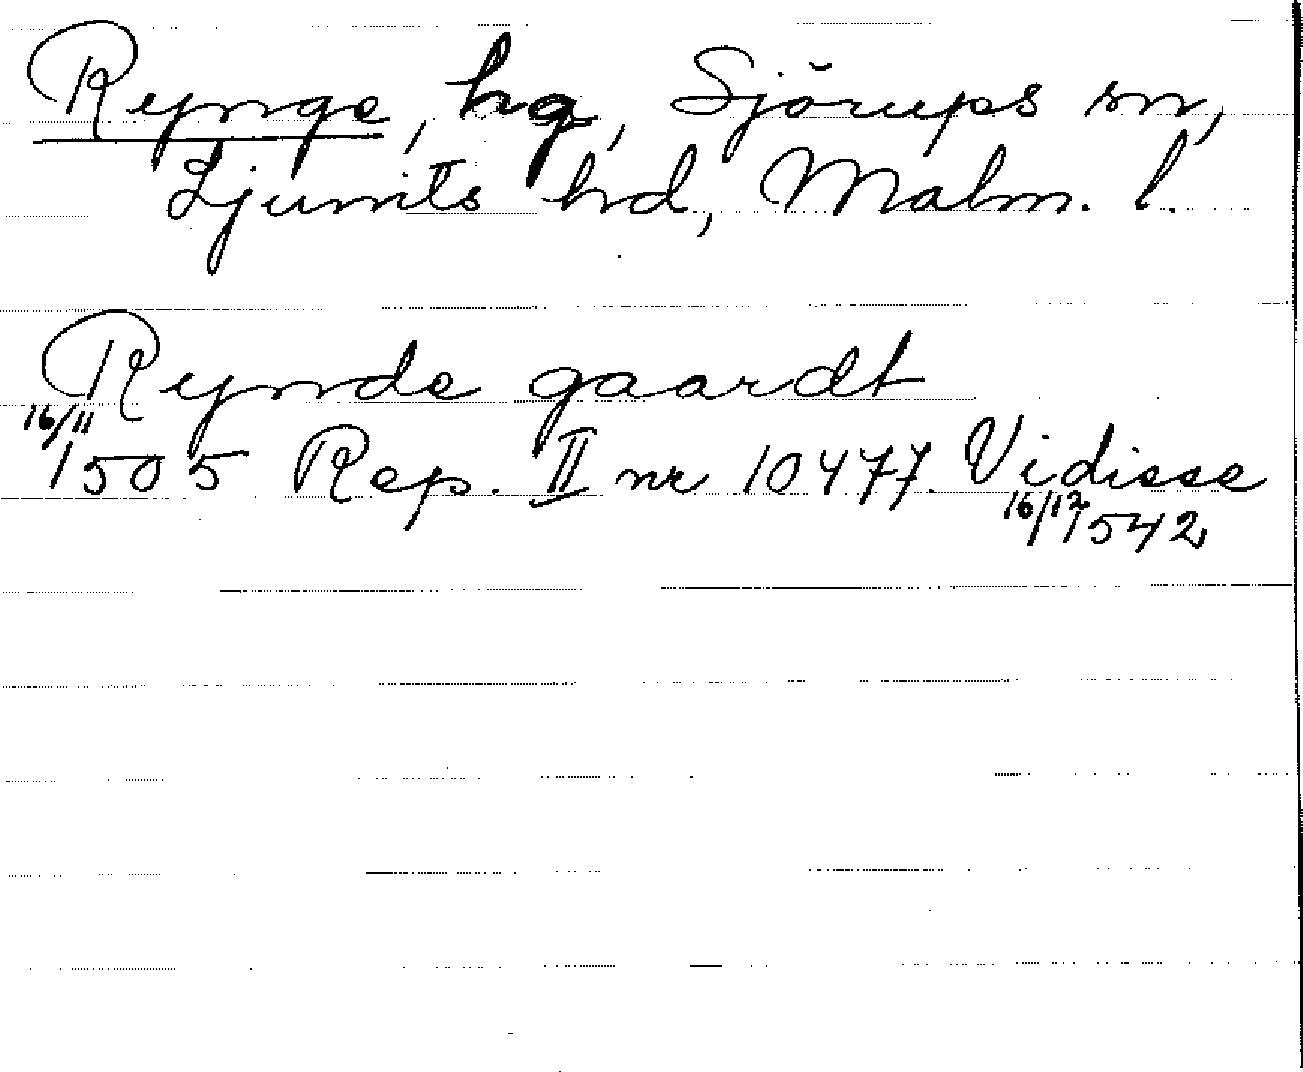 Rynge, hg, Sjörups sn,
Ljunits hd, Malm. l.
Rynde gaardt
16/11 1505 Rep. II nr 10477. Vidisse
16/12 1542